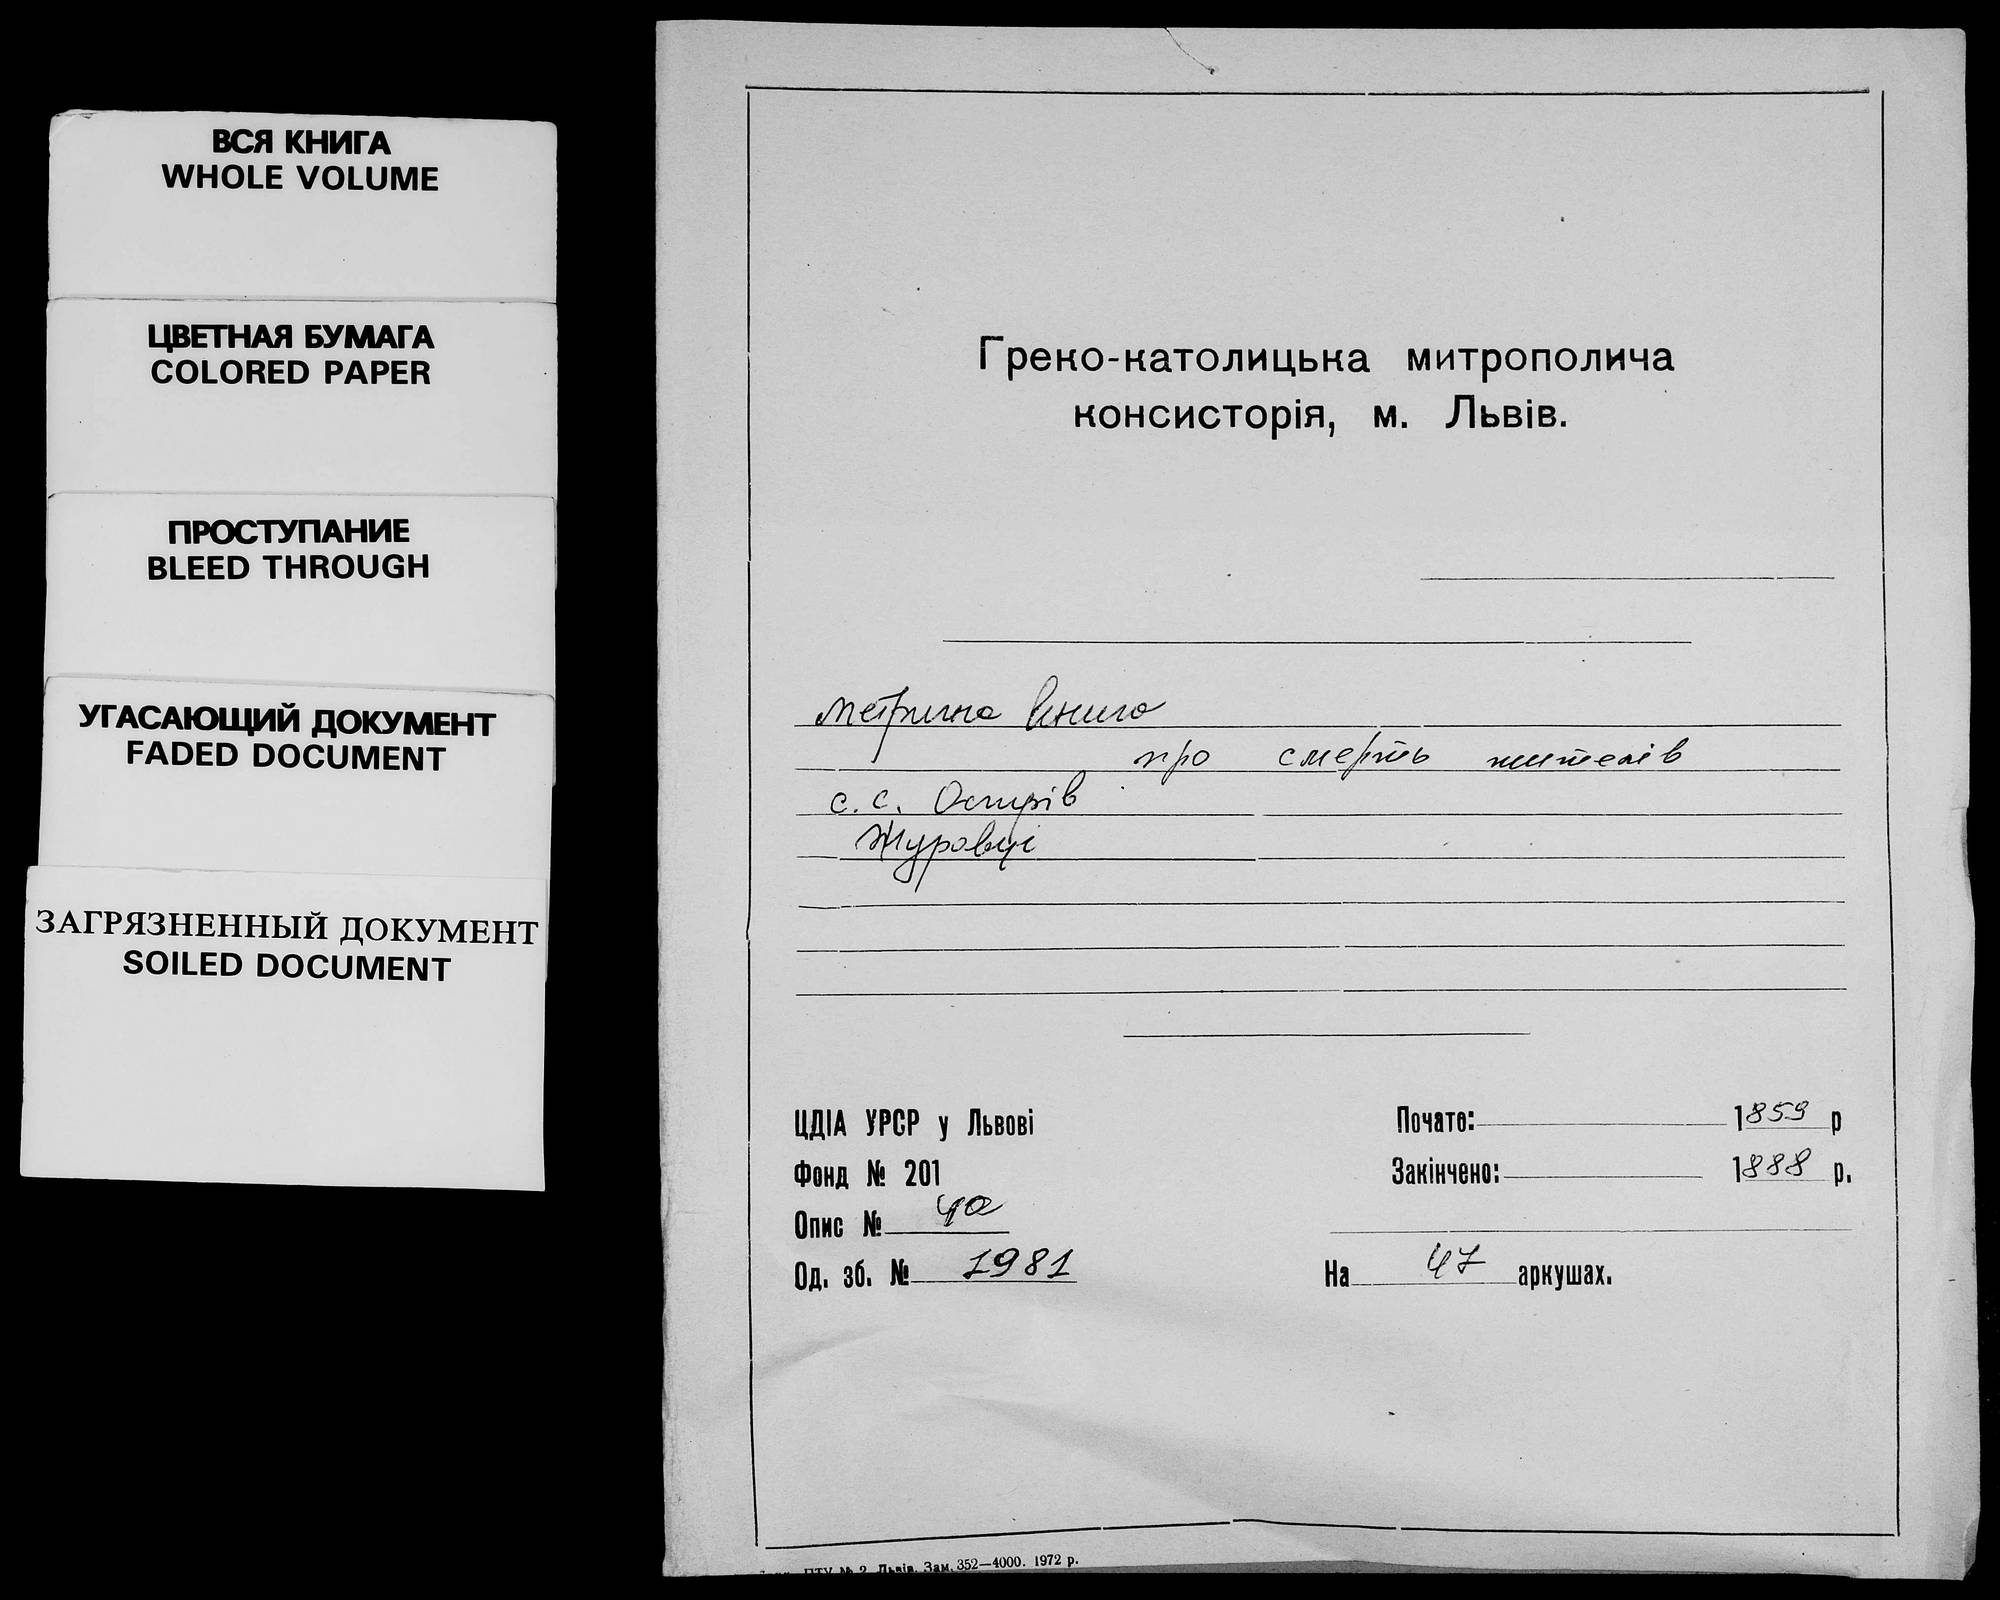 ВСЯ КНИГА
WHOLE VOLUME
ЦВЕТНАЯ БУМАГА
COLORED PAPER
ПРОСТУПАНИЕ
BLEED THROUGH
УГАСАЮЩИЙ ДОКУМЕНТ
FADED DOCUMENT
ЗАГРЯЗНЕННЫЙ ДОКУМЕНТ
SOILED DOCUMENT
Греко-католицька митрополича
консисторія, м. Львів.
метрична книга
про смерть жителів
с.с. Острів
Журовці
ЦДІА УРСР у Львові
Фонд № 201
Опис № 4а
Од. зб. № 1981
Почато: 1859 р
Закінчено: 1888 р.
На 47 аркушах.
ПТУ № 2 Львів. Зам. 352—4000. 1972 р.